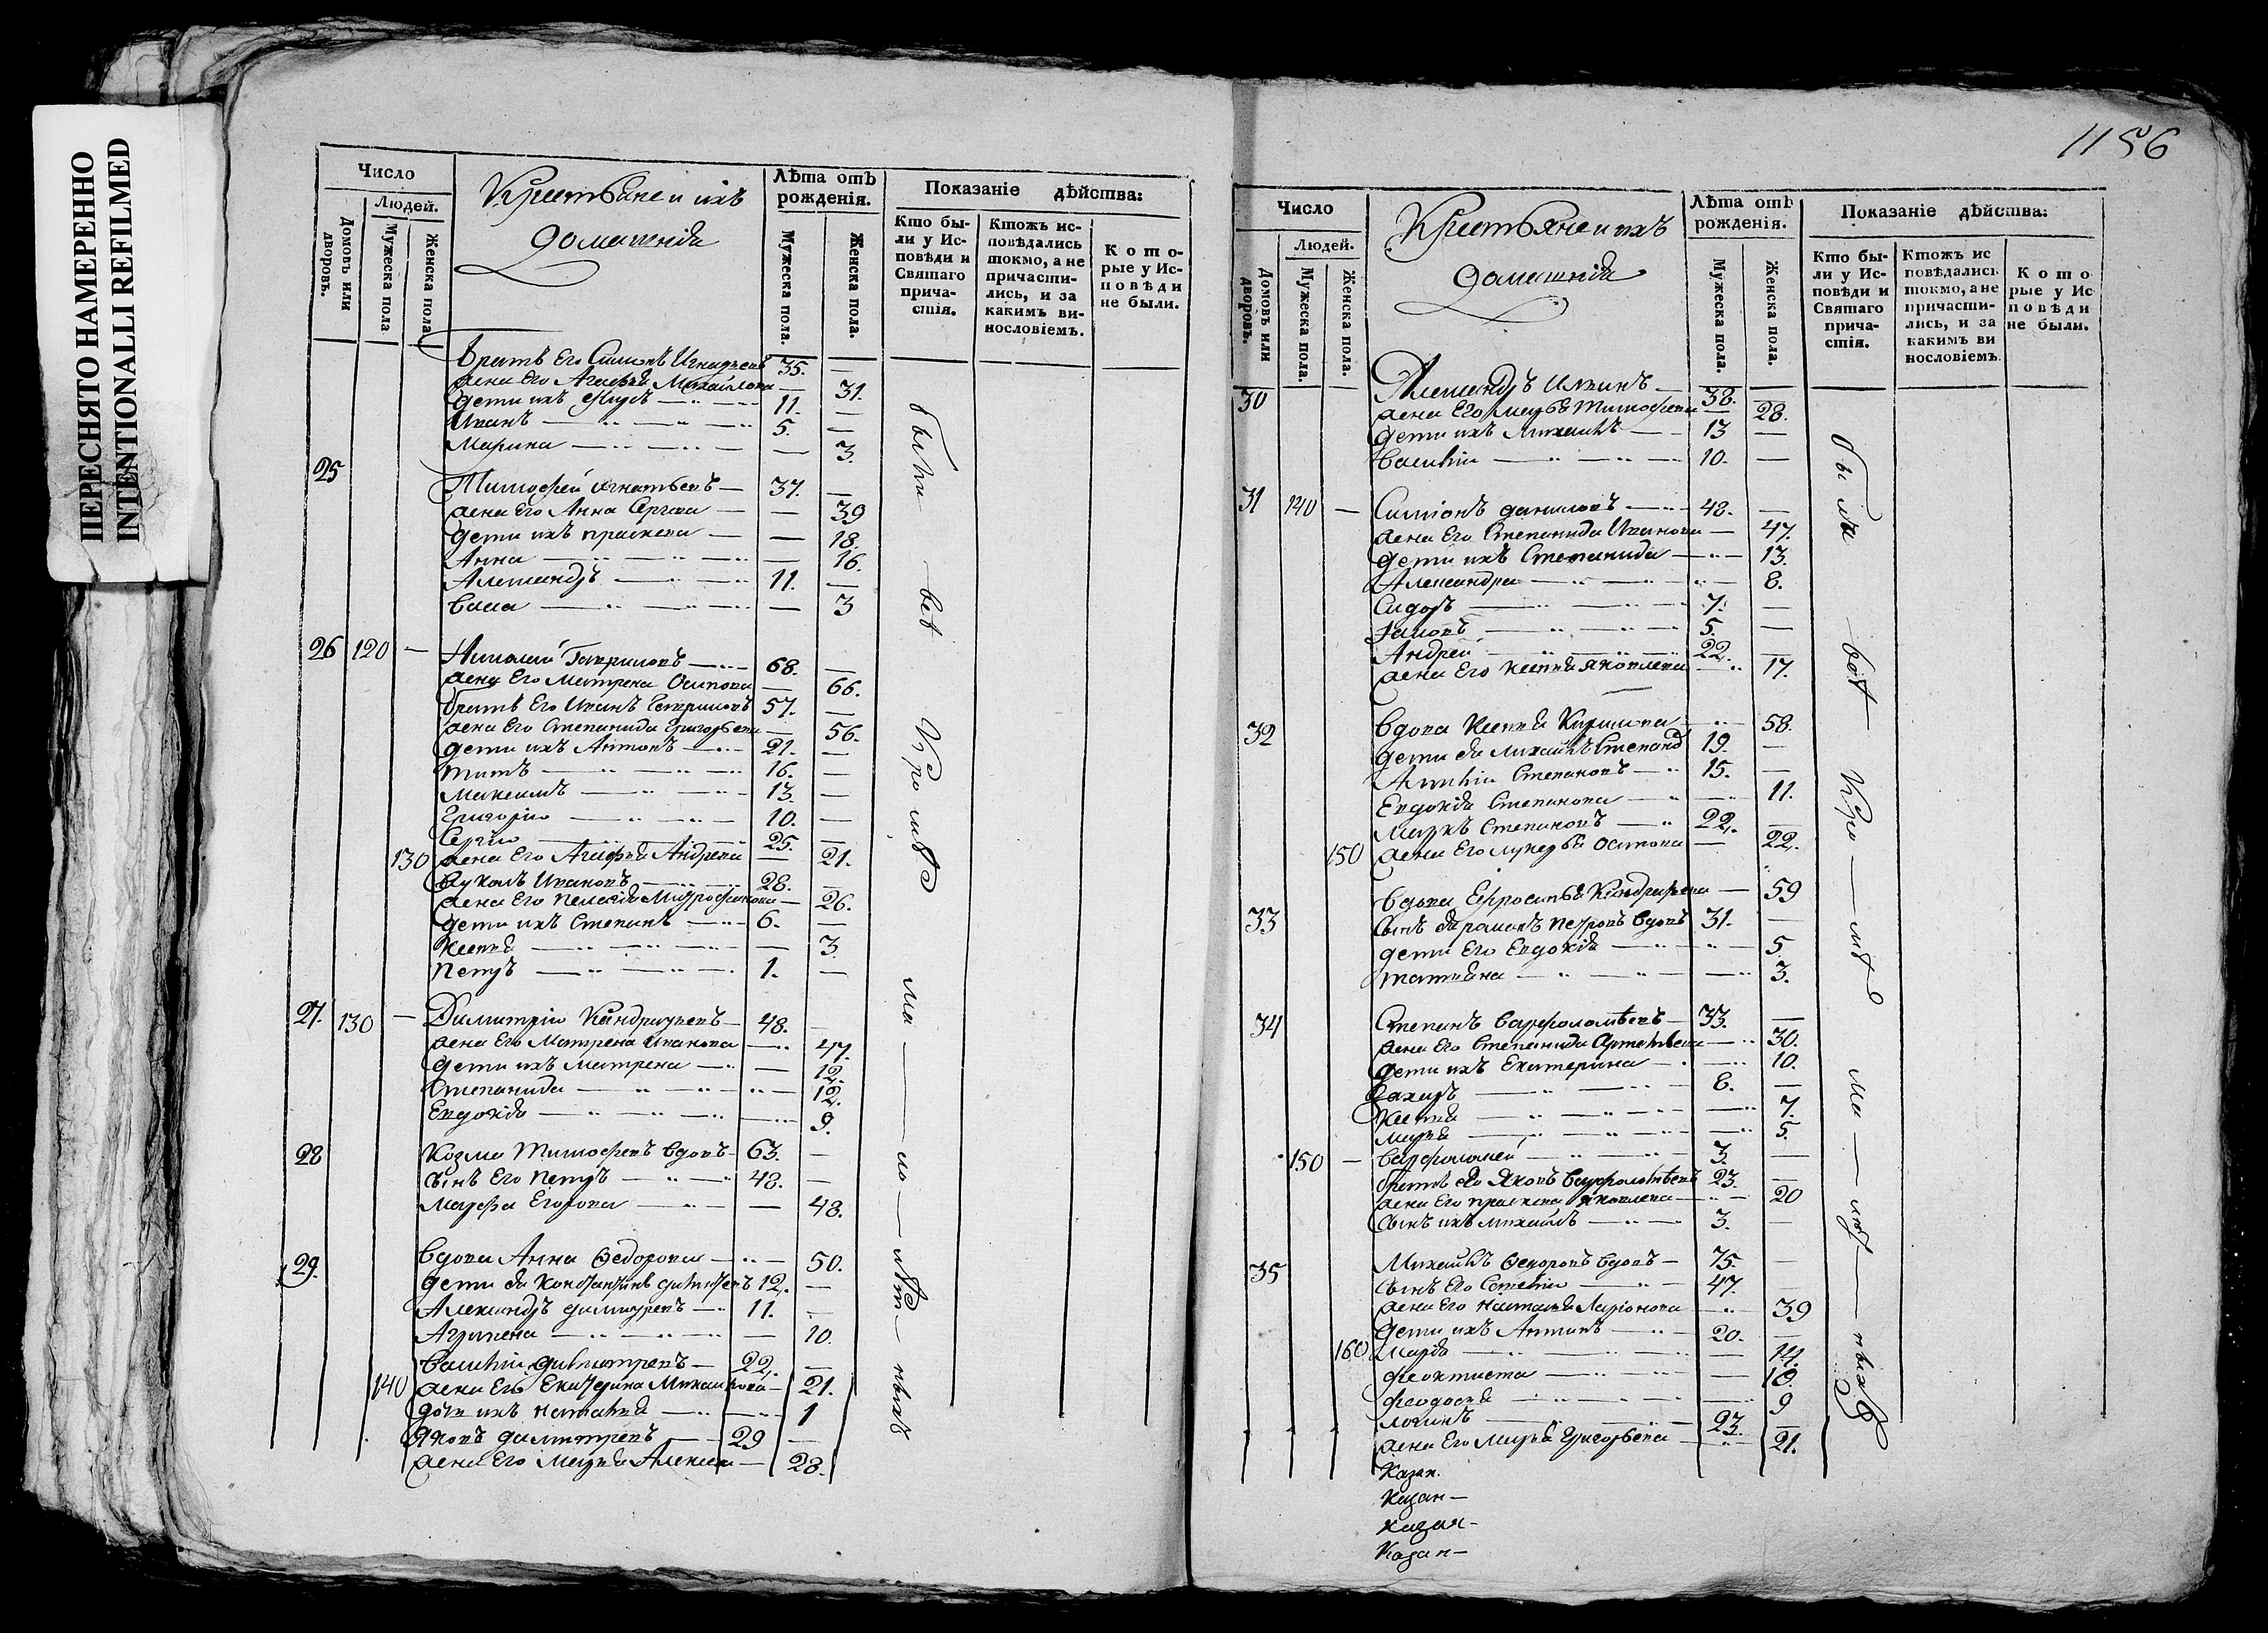 ПЕРЕСНЯТО НАМЕРЕННО
INTENTIONALLI REFILMED
Число
Людей.
Домовъ или дворовъ.
Мужеска пола
Женска пола
Крестьяне и ихъ
домашнія
Лѣта отъ рожденія.
Мужеска пола.
Женска пола.
Показаніе дѣйства:
Кто были у Исповѣди и Святаго причастія.
Ктожъ исповѣдались токмо, а не причастились, и за какимъ винословіемъ.
Которые у Исповѣди не были.
братъ Его Симіонъ Игнатьевъ 35. —
жена Его Агафья Михайлова — 31.
дети ихъ 11. —
Иванъ 5. —
Марина — 3.
25 Тимофей Игнатьевъ — 37. —
жена Его Анна Сергеева — — 39
дети ихъ прасковя — — 18.
Анна — 16.
Александръ 11. —
Васса — 3
26 120 — Николай Гавриловъ 68. —
жена Его Матрена Осипова — 66.
братъ Его Иванъ Гавриловъ 57. —
жена Его Степанида Григорьева — 56.
дети ихъ Антонъ 21. —
титъ 16. —
Максимъ 13. —
Григорій 10. —
Сергій 25. —
130 жена Его Агафья Андреева — 21.
Вуколъ Ивановъ 28. —
жена Его Пелагія Митрофанова — 26.
дети ихъ Степанъ 6. —
Ксенія — 3
Петръ 1. —
27. 130 — Димитрій Кондратьевъ 48. —
жена Его Матрена Иванова — 47.
дети ихъ Матрена — 12.
Степанида 12.
Евдокія 9.
28 Козма Тимофеевъ вдовъ 63. —
сынъ Его Петръ 48. —
Марфа Егорова — 48.
29. Вдова Анна Федорова 50.
дети ея Констянтинъ димитревъ 12. —
Александръ димитревъ 11. —
Агрипена — 10.
Василій димитревъ 22. —
140 жена Его Екатерина Михайлова 21.
дочь ихъ Наталья 1
Яковъ димитревъ 29 —
жена Его Марья Алексеева — 28.
были всѣ кро мѣ ма ло лѣт ныхъ
1156
Число
Людей.
Домовъ или дворовъ.
Мужеска пола.
Женска пола.
Крестьяне и ихъ
домашнія
Лѣта отъ рожденія.
Мужеска пола.
Женска пола.
Показаніе дѣйства:
Кто были у Исповѣди и Святаго причастія.
Ктожъ исповѣдались токмо, а не причастились, и за какимъ винословіемъ.
Которые у Исповѣди не были.
30 Александръ 38. —
жена Его Марья Тимофеева — 28.
дети ихъ Михаилъ 13 —
Василій 10. —
31 140 — Симіонъ даниловъ 48. —
жена Его Степанида Иванова — 47.
дети ихъ Степанида 13.
Александра 8.
Сидоръ 7. —
5. —
Андрей 22. —
жена Его Ксенія Яковлева 17.
32 Вдова Ксенія 58.
дети ея Михаилъ Степановъ 19. —
Степановъ 15. —
Евдокія Степанова 11.
Маркъ Степановъ 22. —
150 жена Его Лукерья Осипова — 22.
33 Вдова Ефросинья Кондратьева — 59
сынъ ея романъ Петровъ вдовъ 31. —
дети Его Евдокія 5.
татияна 3.
34 Степанъ Варфоломѣевъ 33. —
жена Его Степанида Артемьева 30.
дети ихъ Екатерина 10.
Захаръ 8. —
Ксенія 7.
Марья 5.
150 — Варфоломей 3. —
братъ Его Яковъ Варфоломѣевъ 23. —
жена Его прасковя Яковлева 20
сынъ ихъ Михаилъ 3. —
35 Михаилъ Федоровъ вдовъ 75. —
сынъ Его 47. —
жена Его Наталья Ларіонова 39
дети ихъ Антипъ 20. —
160 Марья — 14.
феоктиста — 10.
феодосья 9
логинъ 23. —
жена Его Марья Григорьева 21.
были всѣ кро мѣ ма лѣт ныхъ
Казан.
Казан
Казан
Казан